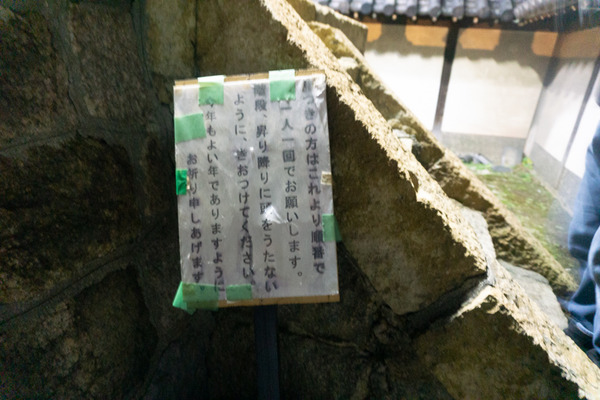 つきの方はこれより順番で
一人一回でお願いします。
階段、昇り降りに頭をうたない
ように、きおつけてください。
今年もよい年でありますように
お祈り申しあげます